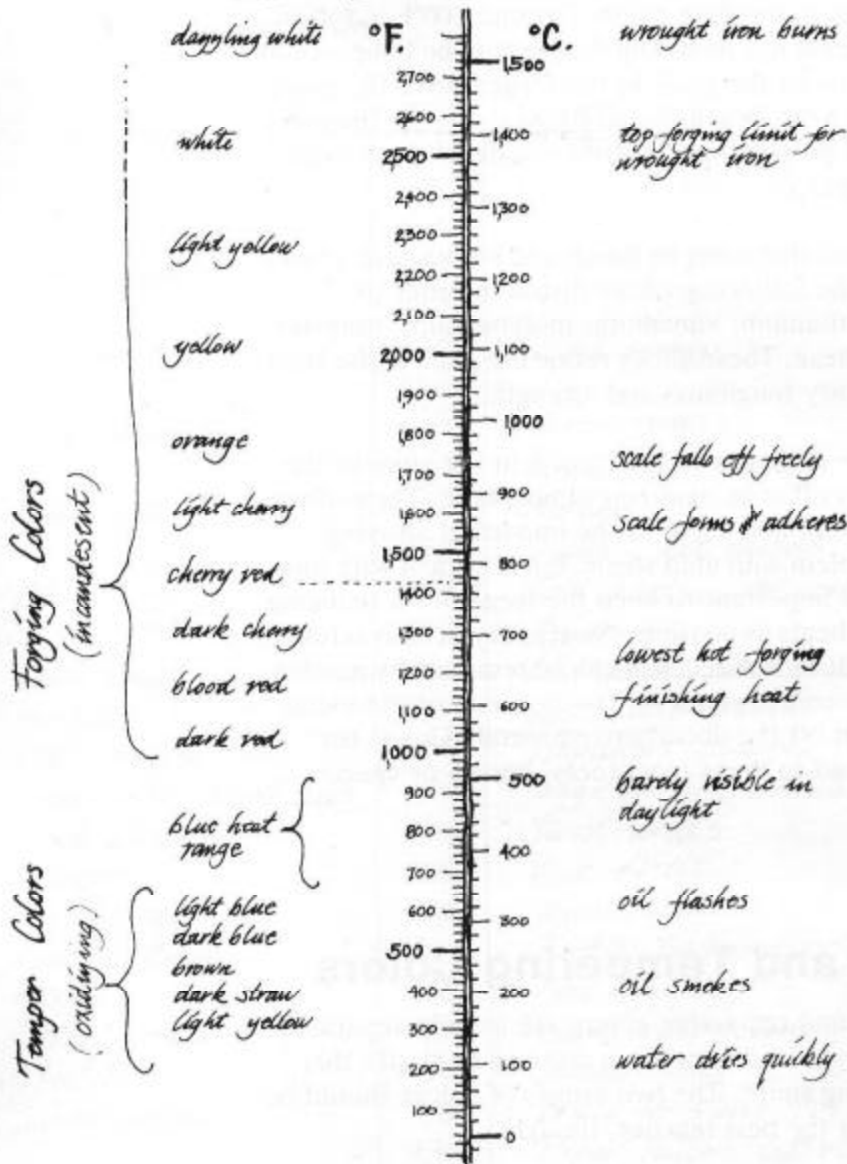 Forging Colors
(incandesent)
Temper Colors
(oxidizing)
dazzling white
white
light yellow
yellow
orange
light cherry
cherry red
dark cherry
blood red
dark red
blue heat
range
light blue
dark blue
brown
dark straw
light yellow
°F.
2,700
2,600
2,500
2,400
2,300
2,200
2,100
2,000
1,900
1,800
1,700
1,600
1,500
1,400
1,300
1,200
1,100
1,000
900
800
700
600
500
400
300
200
100
°C.
1,500
1,400
1,300
1,200
1,100
1,000
900
800
700
600
500
400
300
200
100
0
wrought iron burns
top forging limit for
wrought iron
scale falls off freely
scale forms & adheres
lowest hot forging
finishing heat
barely visible in
daylight
oil flashes
oil smokes
water dries quickly